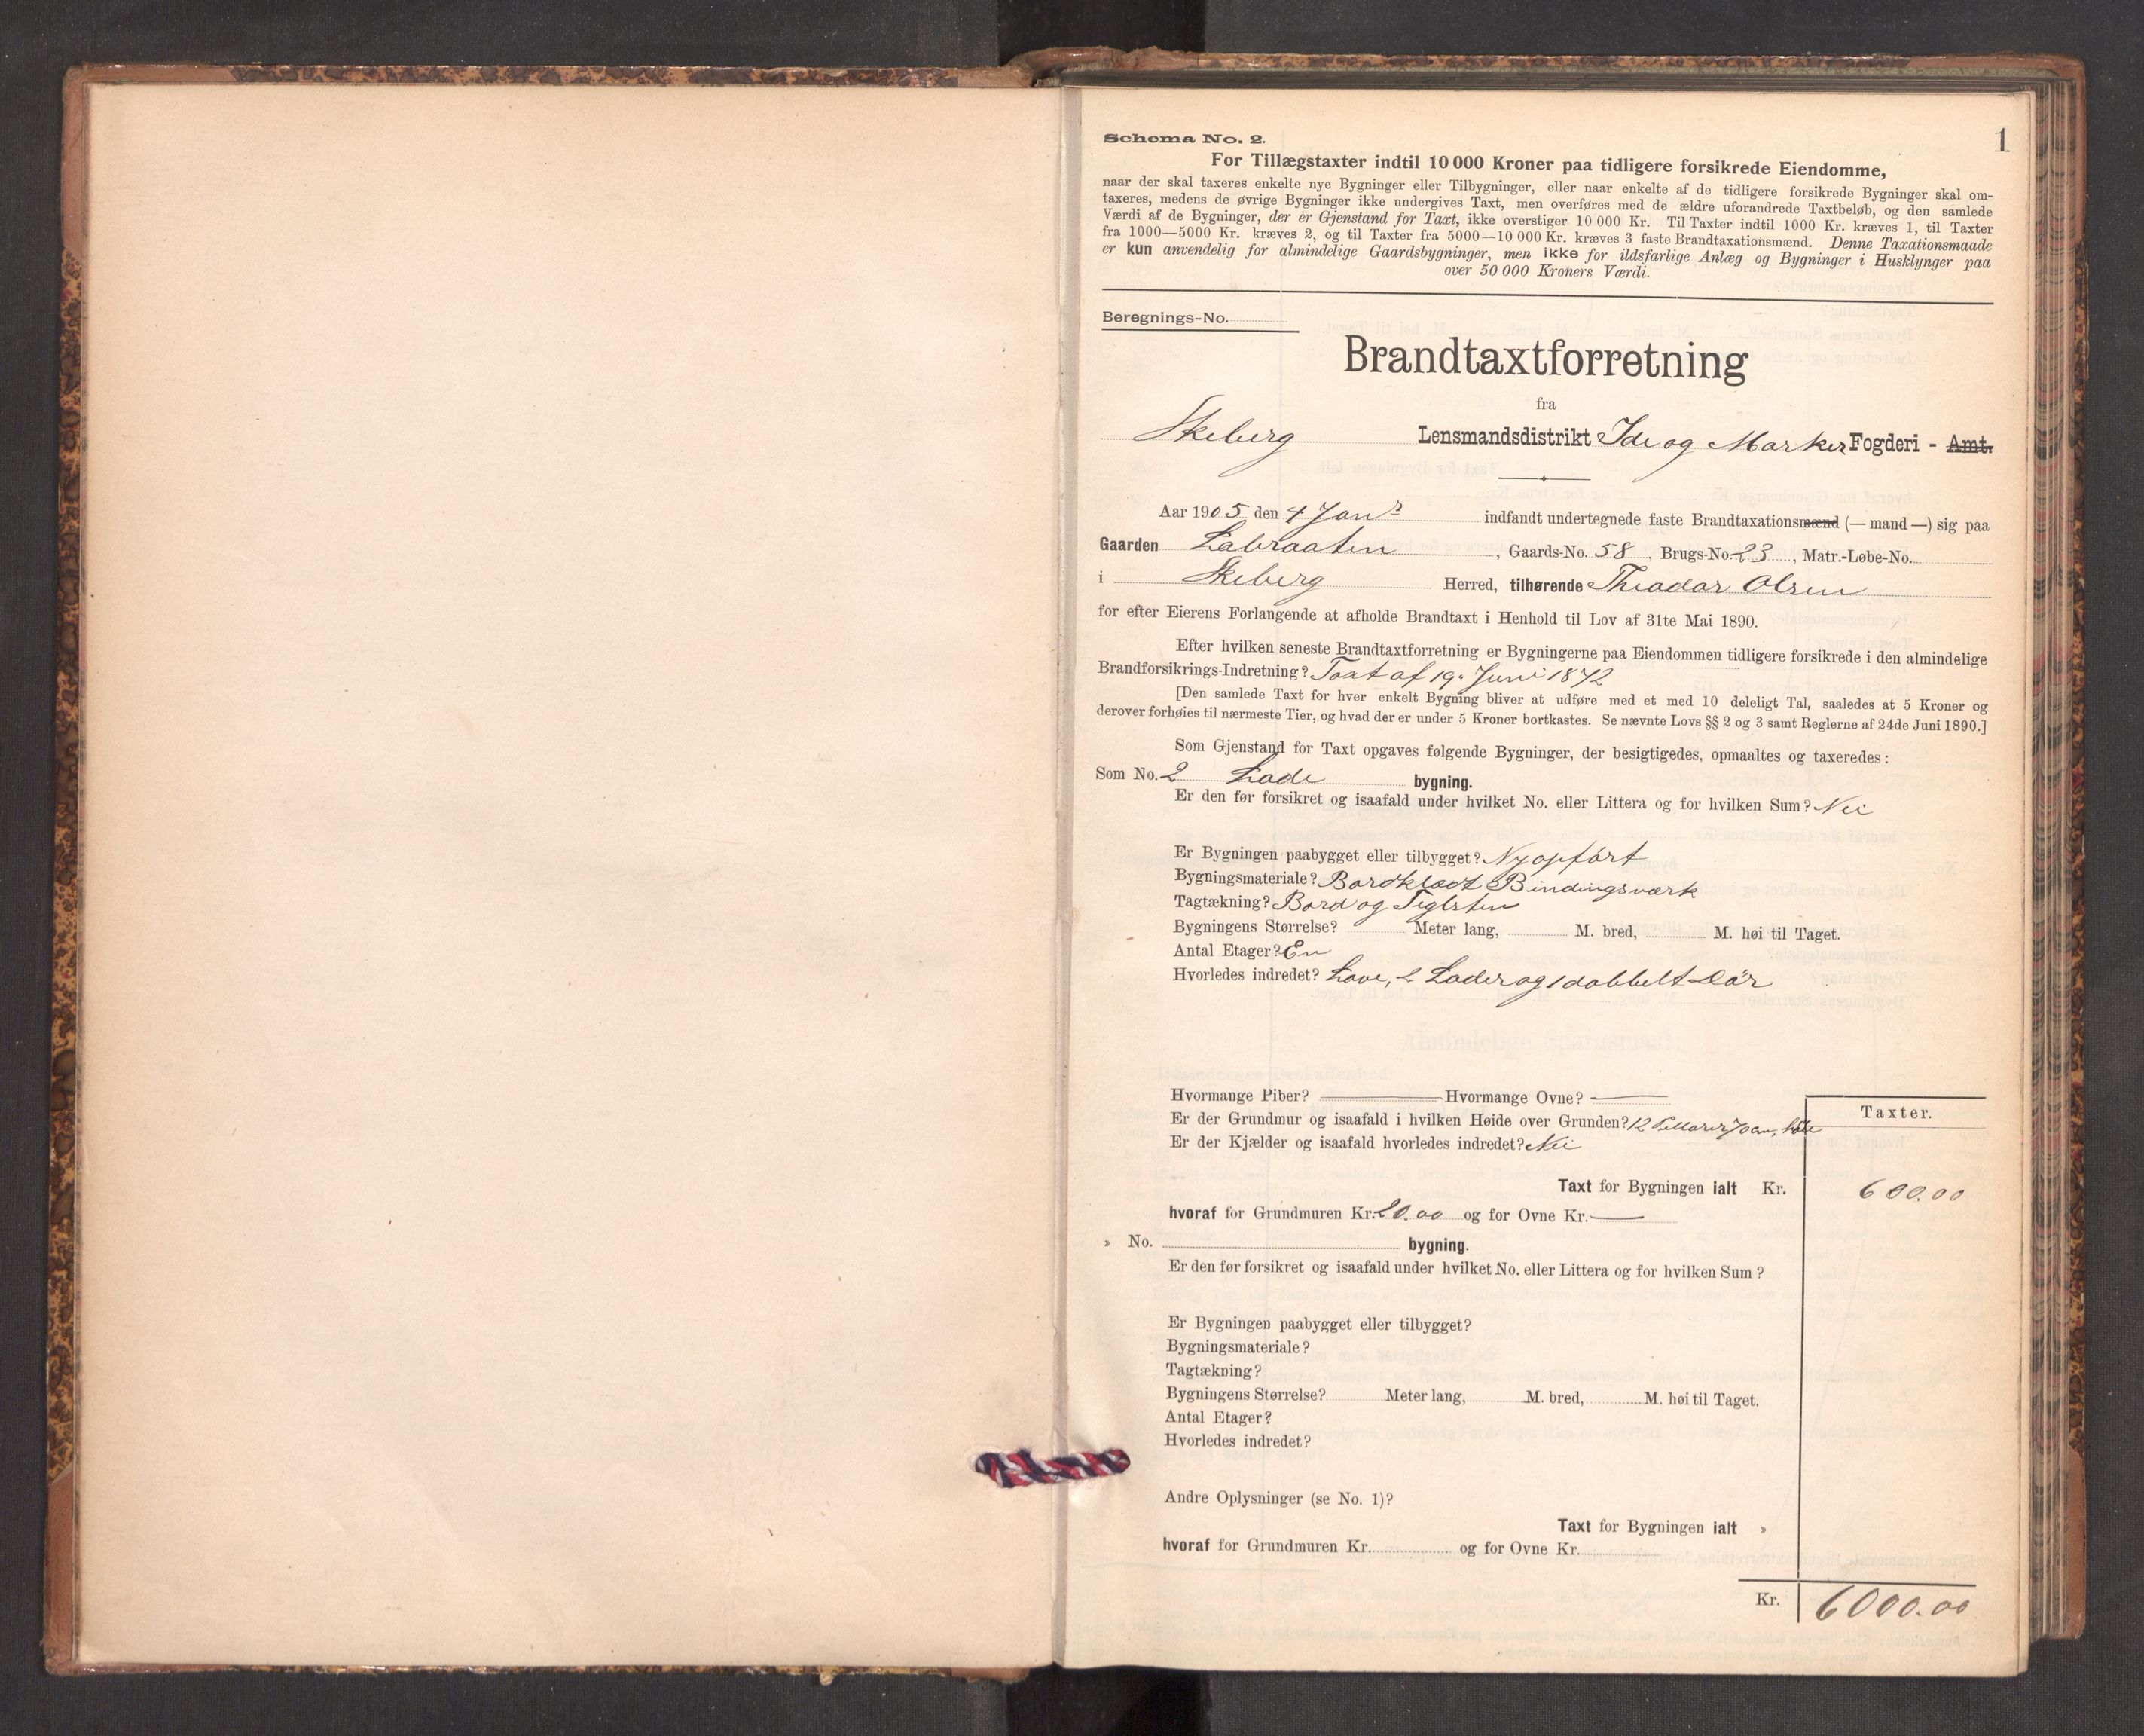 1
Schema No. 2.
For Tillægstaxter indtil 10 000 Kroner paa tidligere forsikrede Eiendomme,
naar der skal taxeres enkelte nye Bygninger eller Tilbygninger, eller naar enkelte af de tidligere forsikrede Bygninger skal om-
taxeres, medens de øvrige Bygninger ikke undergives Taxt, men overføres med de ældre uforandrede Taxtbeløb, og den samlede
Værdi af de Bygninger, der er Gjenstand for Taxt, ikke overstiger 10 000 Kr. Til Taxter indtil 1000 Kr. kræves 1, til Taxter
fra 1000—5000 Kr. kræves 2, og til Taxter fra 5000—10 000 Kr. kræves 3 faste Brandtaxationsmænd. Denne Taxationsmaade
er kun anvendelig for almindelige Gaardsbygninger, men ikke for ildsfarlige Anlæg og Bygninger i Husklynger paa
over 50 000 Kroners Værdi.
Beregnings-No.
Brandtaxtforretning
fra
Skeberg Lensmandsdistrikt Ide og Marker Fogderi - Amt.
Aar 1905 den 4 Janr indfandt undertegnede faste Brandtaxationsmænd (— mand —) sig paa
Gaarden Labraaten, Gaards-No. 58, Brugs-No. 23, Matr.-Løbe-No.
i Skeberg Herred, tilhørende Theodor Olsen
for efter Eierens Forlangende at afholde Brandtaxt i Henhold til Lov af 31te Mai 1890.
Efter hvilken seneste Brandtaxtforretning er Bygningerne paa Eiendommen tidligere forsikrede i den almindelige
Brandforsikrings-Indretning? Taxt af 19. Juni 1872
[Den samlede Taxt for hver enkelt Bygning bliver at udføre med et med 10 deleligt Tal, saaledes at 5 Kroner og
derover forhøies til nærmeste Tier, og hvad der er under 5 Kroner bortkastes. Se nævnte Lovs §§ 2 og 3 samt Reglerne af 24de Juni 1890.]
Som Gjenstand for Taxt opgaves følgende Bygninger, der besigtigedes, opmaaltes og taxeredes:
Som No. 2 Lade bygning.
Er den før forsikret og isaafald under hvilket No. eller Littera og for hvilken Sum? Nei
Er Bygningen paabygget eller tilbygget? Nyopført
Bygningsmateriale? Bordklædt Bindingsværk
Tagtækning? Bord og Teglsten
Bygningens Størrelse? Meter lang, M. bred, M. høi til Taget.
Antal Etager? En
Hvorledes indredet? Lave, 2 Lader og 1 dobbelt Dör
Hvormange Piber? — Hvormange Ovne? —
Taxter.
Er der Grundmur og isaafald i hvilken Høide over Grunden? 12 Pillarer 70 cm,
Er der Kjælder og isaafald hvorledes indredet? Nei
Taxt for Bygningen ialt Kr. 600.00
hvoraf for Grundmuren Kr. 20.00 og for Ovne Kr. —
» No. bygning.
Er den før forsikret og isaafald under hvilket No. eller Littera og for hvilken Sum?
Er Bygningen paabygget eller tilbygget?
Bygningsmateriale?
Tagtækning?
Bygningens Størrelse? Meter lang, M. bred, M. høi til Taget.
Antal Etager?
Hvorledes indredet?
Andre Oplysninger (se No. 1)?
Taxt for Bygningen ialt »
hvoraf for Grundmuren Kr. og for Ovne Kr.
Kr. 6000.00